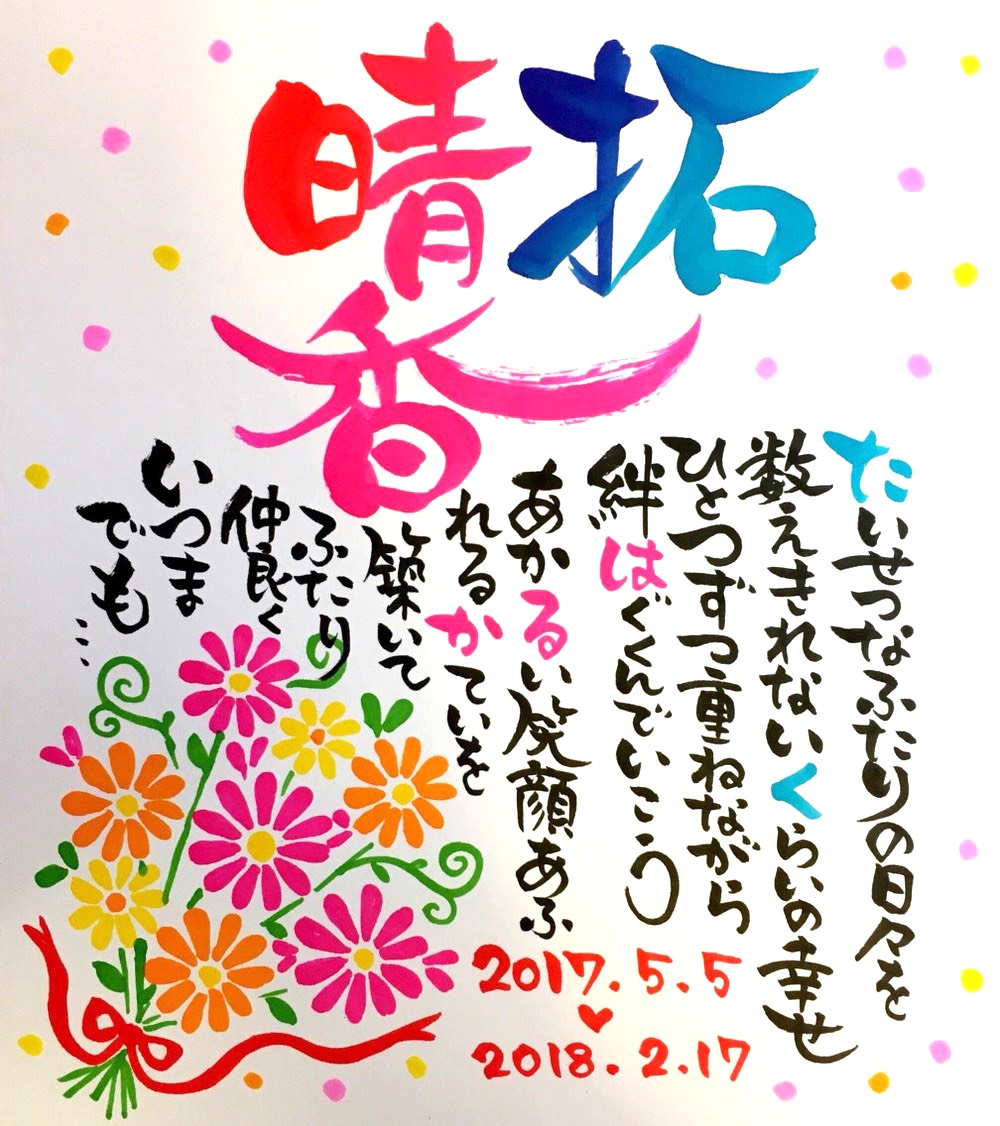 拓
晴香
たいせつなふたりの日々を
数えきれないくらいの幸せ
ひとつずつ重ねながら
絆はぐくんでいこう
あかるい笑顔あふ
れるかていを
築いて
ふたり
仲良く
いつま
でも…
2017.5.5
2018.2.17